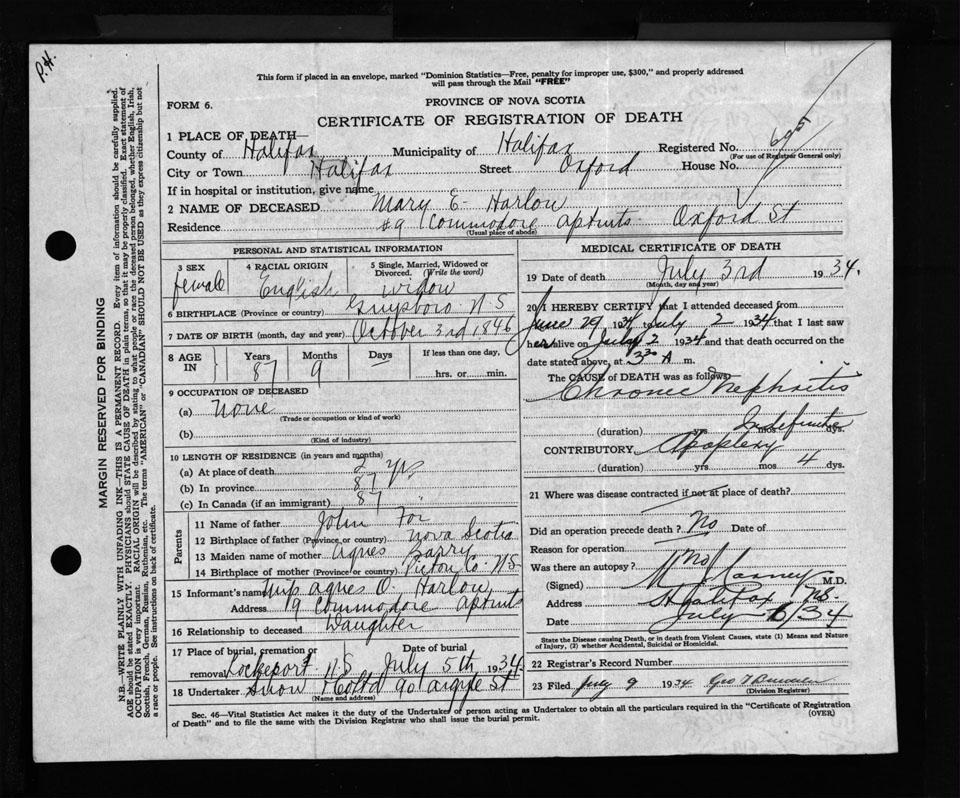 P.H.
This form if placed in an envelope, marked "Dominion Statistics—Free, penalty for improper use, $300," and properly addressed
will pass through the Mail "FREE"
FORM 6.
PROVINCE OF NOVA SCOTIA
CERTIFICATE OF REGISTRATION OF DEATH
1 PLACE OF DEATH—
County of Halifax Municipality of Halifax Registered No. 695
(For use of Registrar General only)
City or Town Halifax Street Oxford House No.
If in hospital or institution, give name
2 NAME OF DECEASED Mary E. Harlow
Residence 19 Commodore aptmts Oxford St
(Usual place of abode)
PERSONAL AND STATISTICAL INFORMATION
3 SEX female
4 RACIAL ORIGIN English
5 Single, Married, Widowed or Divorced. (Write the word) widow
6 BIRTHPLACE (Province or country) Guysboro N.S
7 DATE OF BIRTH (month, day and year) October 3rd 1846
8 AGE IN Years 87 Months 9 Days If less than one day, hrs. or min.
9 OCCUPATION OF DECEASED
(a) None
(Trade or occupation or kind of work)
(b)
(Kind of industry)
10 LENGTH OF RESIDENCE (in years and months)
(a) At place of death 2 yrs
(b) In province 87
(c) In Canada (if an immigrant) 87 "
Parents
11 Name of father John
12 Birthplace of father (Province or country) Nova Scotia
13 Maiden name of mother Agnes Barry
14 Birthplace of mother (Province or country) Pictou Co. N.S
15 Informant's name Miss Agnes O. Harlow
Address 19 Commodore aptmts
16 Relationship to deceased Daughter
17 Place of burial, cremation or removal Lockeport N.S Date of burial July 5th 1934
18 Undertaker Snow 90 Argyle St
(Name and address)
MEDICAL CERTIFICATE OF DEATH
19 Date of death July 3rd 1934.
(Month, day and year)
20 I HEREBY CERTIFY that I attended deceased from
June 29 1934 July 2 1934 that I last saw
her alive on July 2 1934 and that death occurred on the
date stated above, at 3 30 A m.
The CAUSE of DEATH was as follows:
Chronic Nephritis
(duration) yrs. Indefinite dys.
CONTRIBUTORY Apoplexy
(duration) yrs mos 4 dys.
21 Where was disease contracted if not at place of death?
Did an operation precede death? No Date of
Reason for operation
Was there an autopsy? No
(Signed) M.D.
Address Halifax NS.
Date July 34
State the Disease causing Death, or in death from Violent Causes, state (1) Means and Nature
of Injury, (2) whether Accidental, Suicidal or Homicidal.
22 Registrar's Record Number
23 Filed July 9 1934 Geo
(Division Registrar)
Sec. 46—Vital Statistics Act makes it the duty of the Undertaker or person acting as Undertaker to obtain all the particulars required in the "Certificate of Registration
of Death" and to file the same with the Division Registrar who shall issue the burial permit.
(OVER)
MARGIN RESERVED FOR BINDING
N.B.—WRITE PLAINLY WITH UNFADING INK—THIS IS A PERMANENT RECORD. Every item of information should be carefully supplied.
AGE should be stated EXACTLY. PHYSICIANS should STATE CAUSE OF DEATH in plain terms, so that it may be properly classified. Exact statement of
OCCUPATION is very important. RACIAL ORIGIN will be described by stating to what people or race the deceased person belonged, whether English, Irish,
Scottish, French, German, Russian, Ruthenian, etc. The terms "AMERICAN" or "CANADIAN" SHOULD NOT BE USED as they express citizenship but not
a race or people. See instructions on back of certificate.